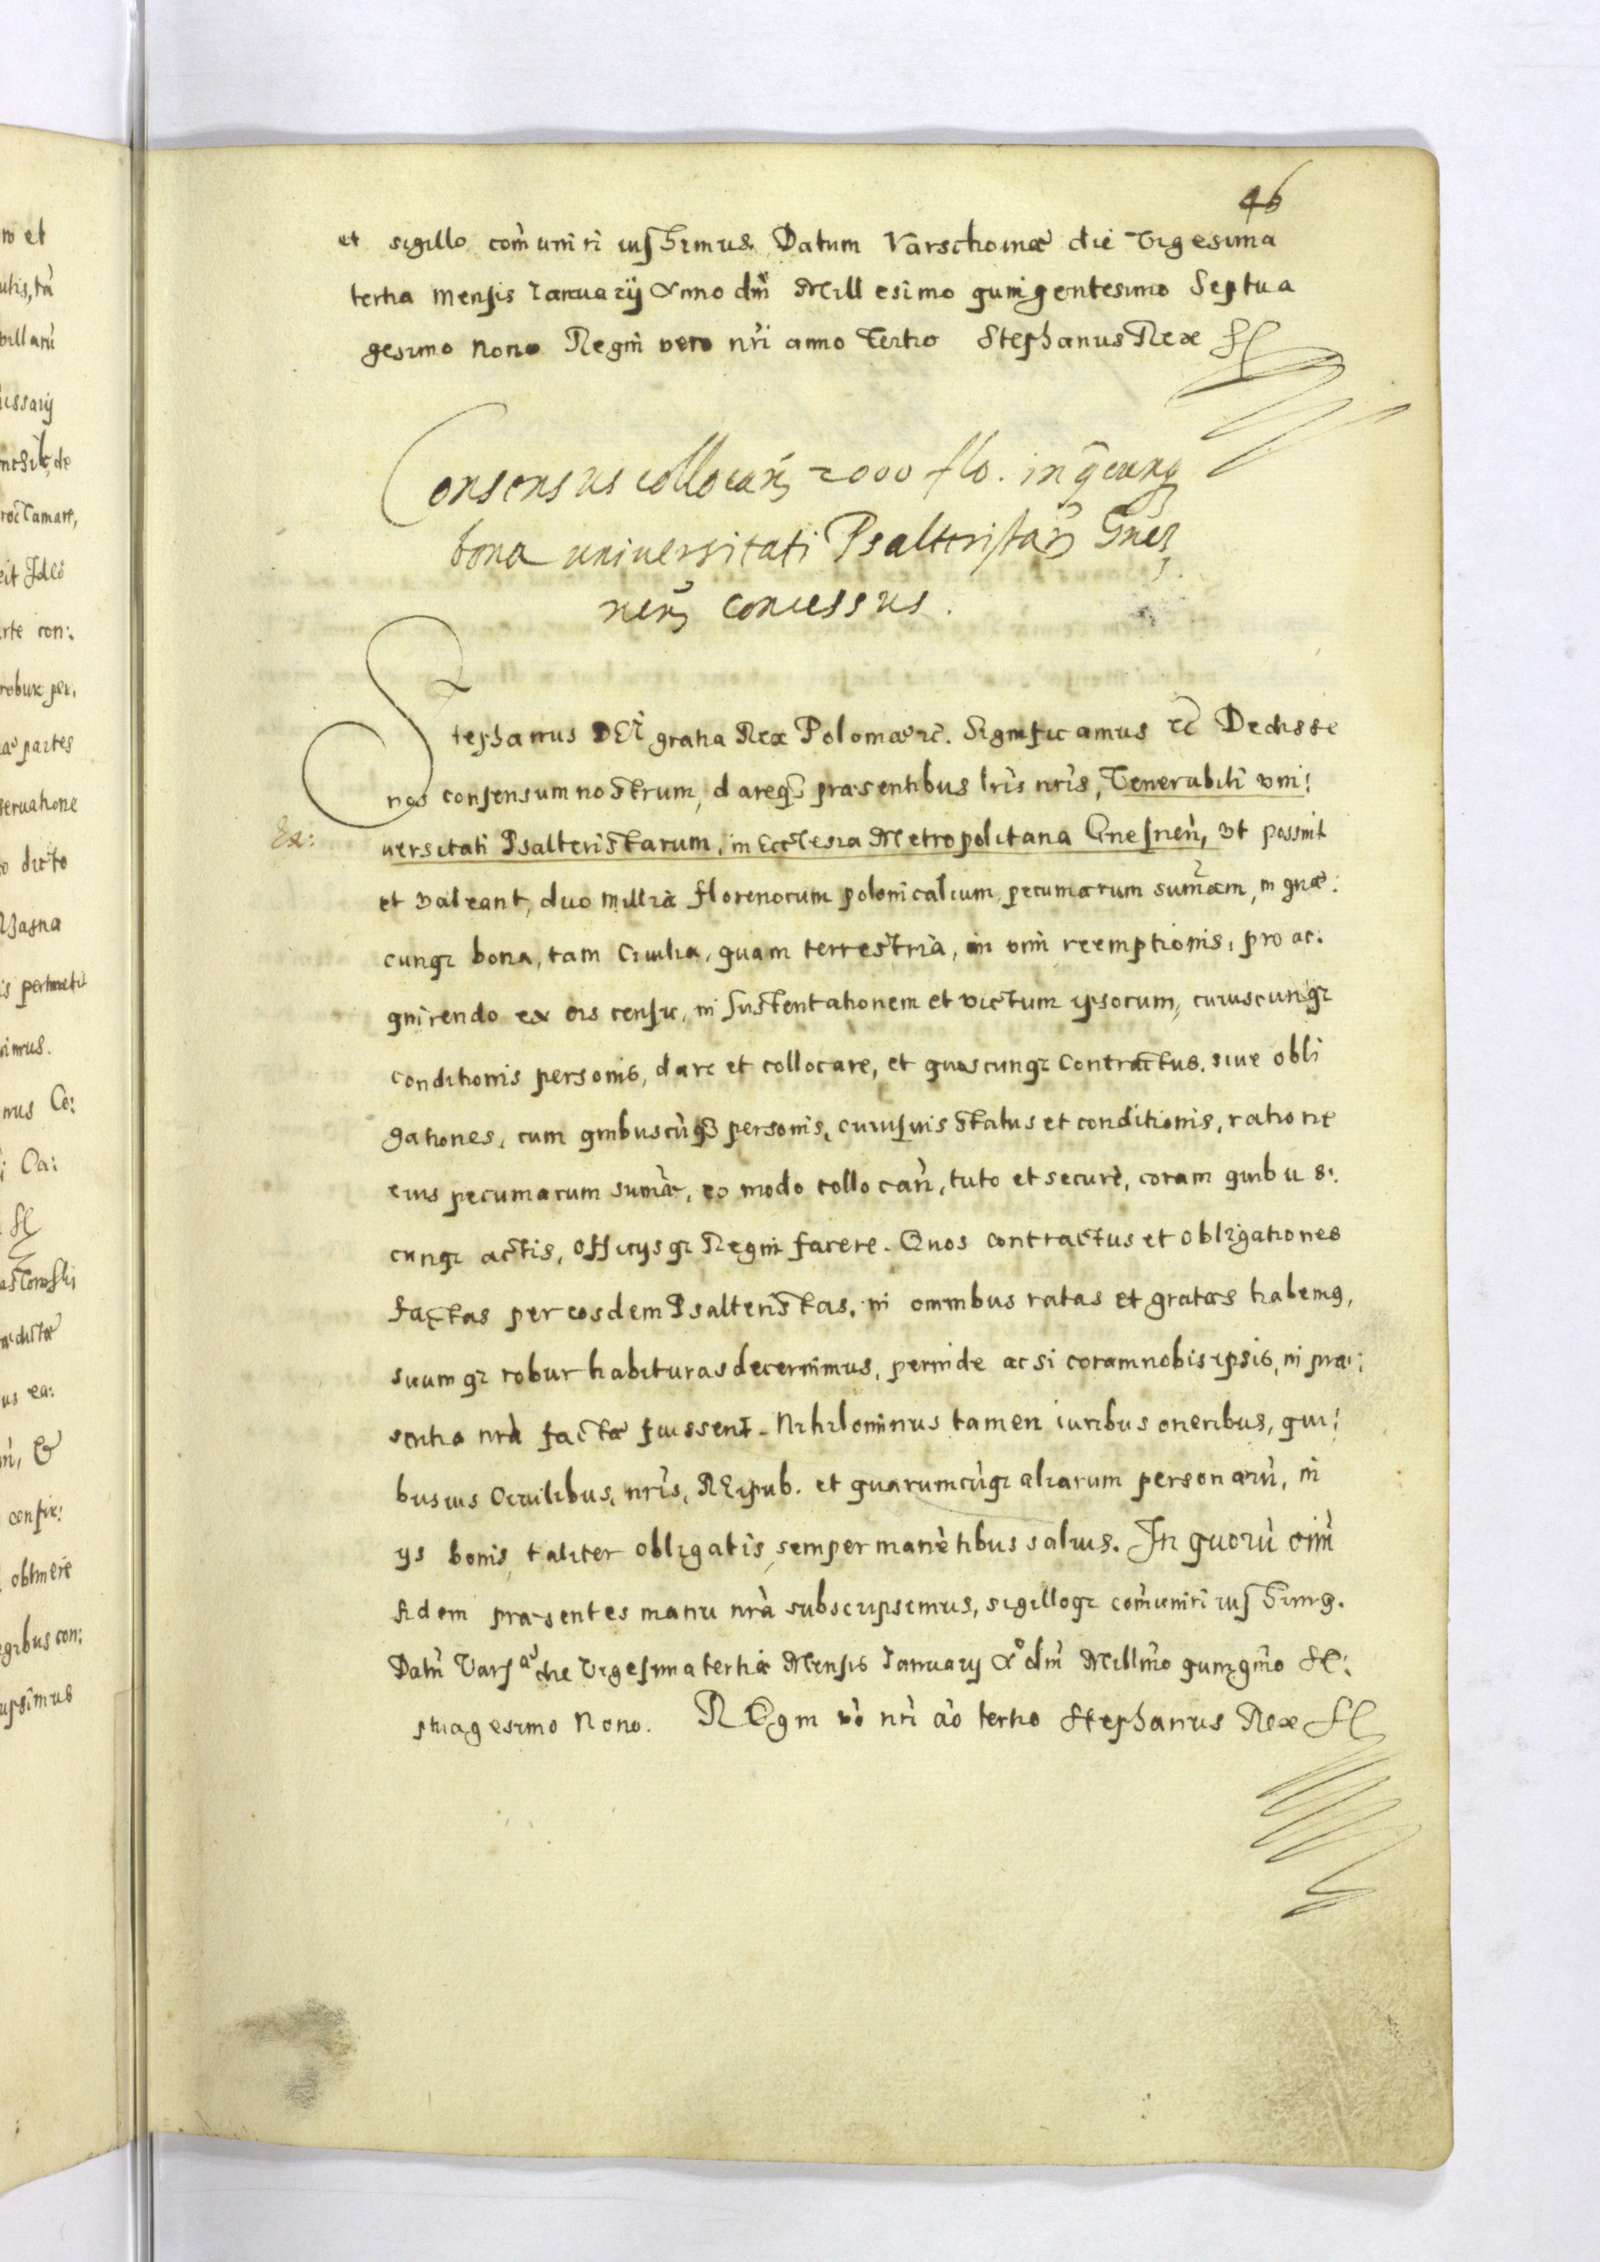 46
et sigillo com̃uniri iussimus. Datum Varschoviæ die Vigesima
tertia Mensis Ianuarij Anno dñi Millesimo quingentesimo Septua
gesimo Nono Regni vero nr̃i anno Tertio Stephanus Rex
Consensus collocan̄ 2000 flo. in q̄cunq
bona universitati Psalteristar̄ Gnez
nen̄ concessus.
Stephanus DEI gratia Rex Poloniæ ꝛc̃. Significamus ꝛc̃ Dedisse
nos consensum nostrum, dareqꝫ præsentibus lr̃is nr̃is, Venerabili vni:
uersitati Psalteristarum, in Ecclesia Metropolitana Gnesnen̄, Vt possint
Ex:
et valeant, duo millia florenorum polonicalium, pecuniarum sum̃am, in quæ:
cunqꝫ bona, tam Ciuilia, quam terrestria, in vim reemptionis, pro ac:
quirendo ex eis censu, in sustentationem et victum ipsorum, cuiuscunqꝫ
conditionis personis, dare et collocare, et quoscunqꝫ Contractus, siue obli
gationes, cum quibuscũqꝫ personis, cuiusuis status et conditionis, ratione
eius pecuniarum sum̃æ, eo modo collocan̄, tuto et securè, coram quibus:
cunqꝫ actis, officijsqꝫ Regni facere. Quos contractus et obligationes
factas per eosdem Psalteristas, in omnibus ratas et gratas habemꝰ,
suumqꝫ robur habituras decernimus, perinde ac si coram nobis ipsis, in præ:
sentia nr̃a factæ fuissent. Nihilominus tamen iuribus oneribus, qui:
busuis Ciuilibus, nr̃is, REipub. et quarumcũqꝫ aliarum personarũ, in
ijs bonis, taliter obligatis, semper manẽtibus saluis. In quorũ oĩm
fidem præsentes manu nr̃a subscripsimus, sigilloqꝫ com̃uniri iussimꝰ.
Datũ Vars͞æ die Vigesima tertia Mensis Ianuarij Aº dñi Millm̃o quingm̃o Se:
ptuagesimo Nono. REgni vò nr̃i aõ tertio Stephanus Rex